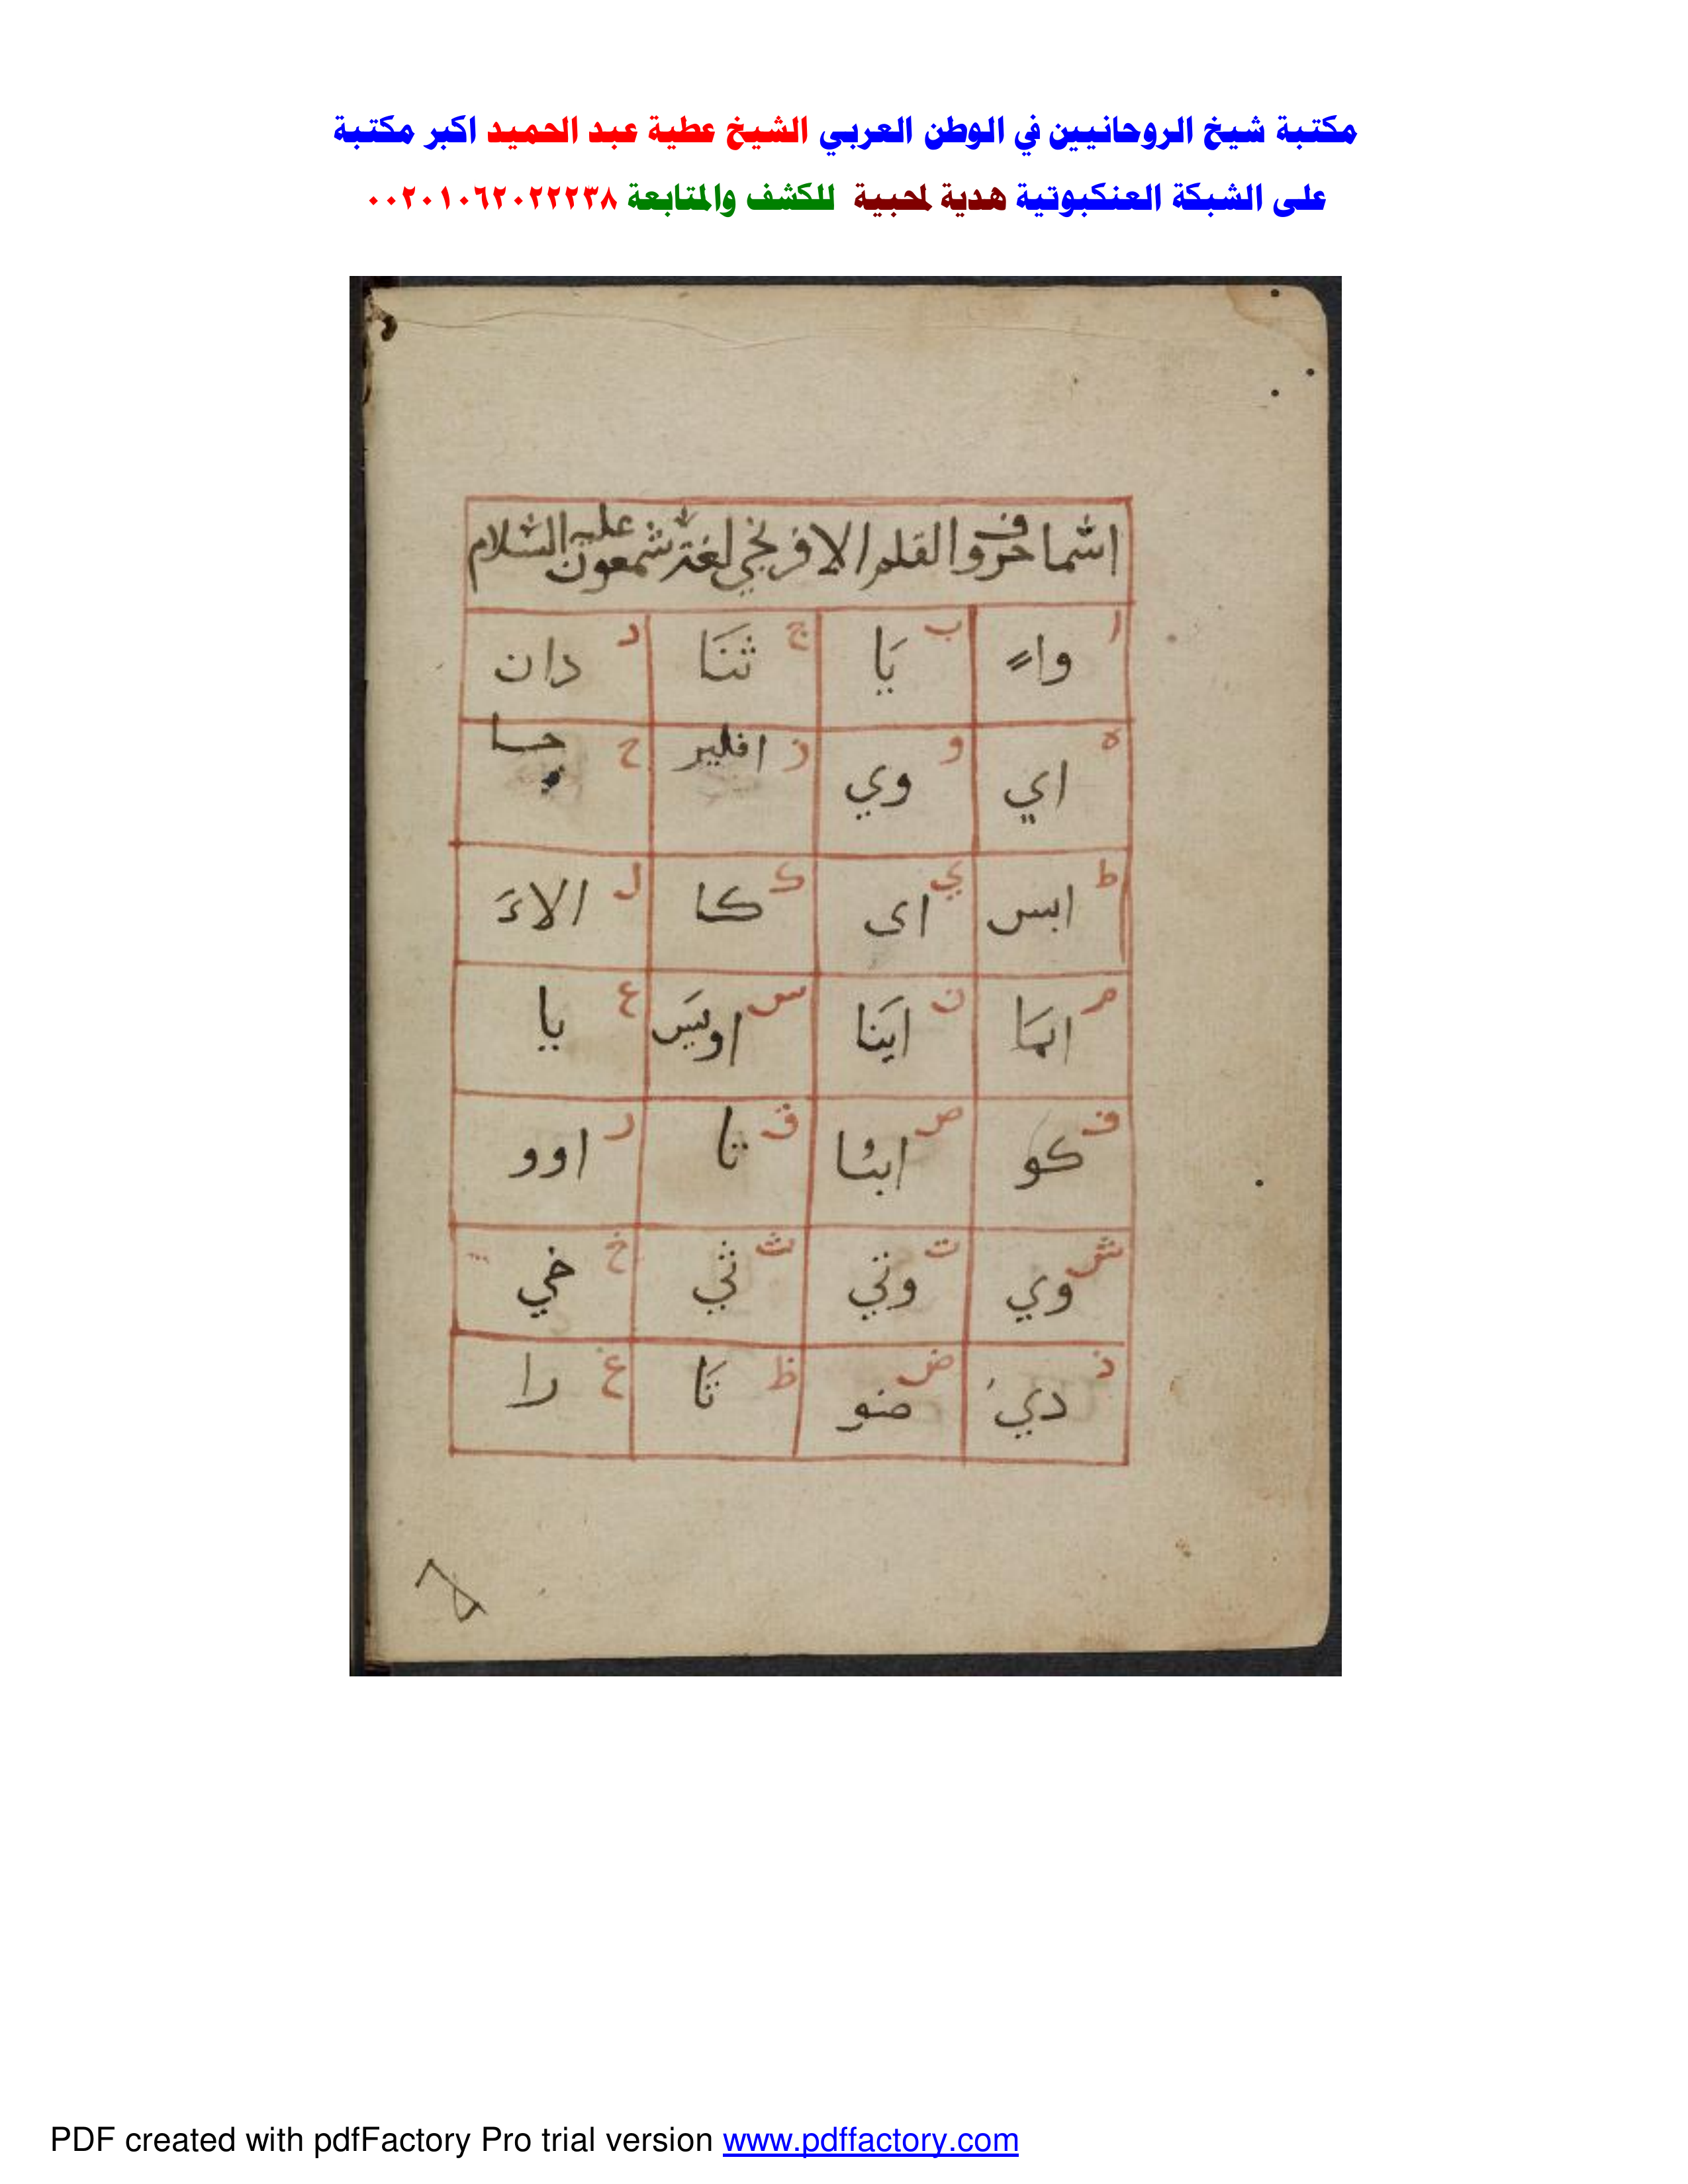 مكتبة شيخ الروحانيين في الوطن العربي الشيخ عطية عبد الحميد اكبر مكتبة
على الشبكة العنكبوتية هدية لمحبية للكشف والمتابعة ٠٠٢٠١٠٦٢٠٢٢٢٣٨
اسما حروف القلم الافرنجي لغة شمعون عليه السلام
ا واء ب يَا ج ثَنَا د دان
ه اي و وي ز افلير ح جسا
ط ابس ي اى ك كا ل الاءَ
م ايمَا ن ايَنا س اويَس ع يا
ف كو ص ق تا ر اوو
ش وي ت وتي ث ثي خ خي
ذ دي ض ضو ظ تَا غ را
PDF created with pdfFactory Pro trial version www.pdffactory.com